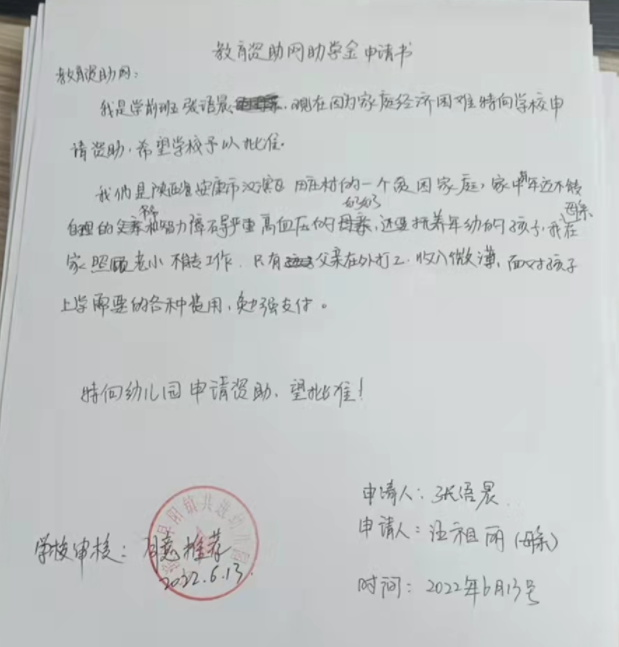 教育资助网助学金申请书
教育资助网：
我是学前班张语晨，现在因为家庭经济困难特向学校申
请资助，希望学校予以批准。
我们是陕西省安康市汉滨区 田庄村的一个贫困家庭，家中有年迈不能
自理的爷爷和智力障碍严重高血压的奶奶，还要抚养年幼的孩子，母亲在
家照顾老小不能去工作。只有父亲在外打工，收入微薄，面对孩子
上学需要的各种费用，勉强支付。
特向幼儿园申请资助，望批准！
申请人：张语晨
申请人：汪祖丽（母亲）
学校审核：同意推荐
2022.6.13
时间：2022年6月13号